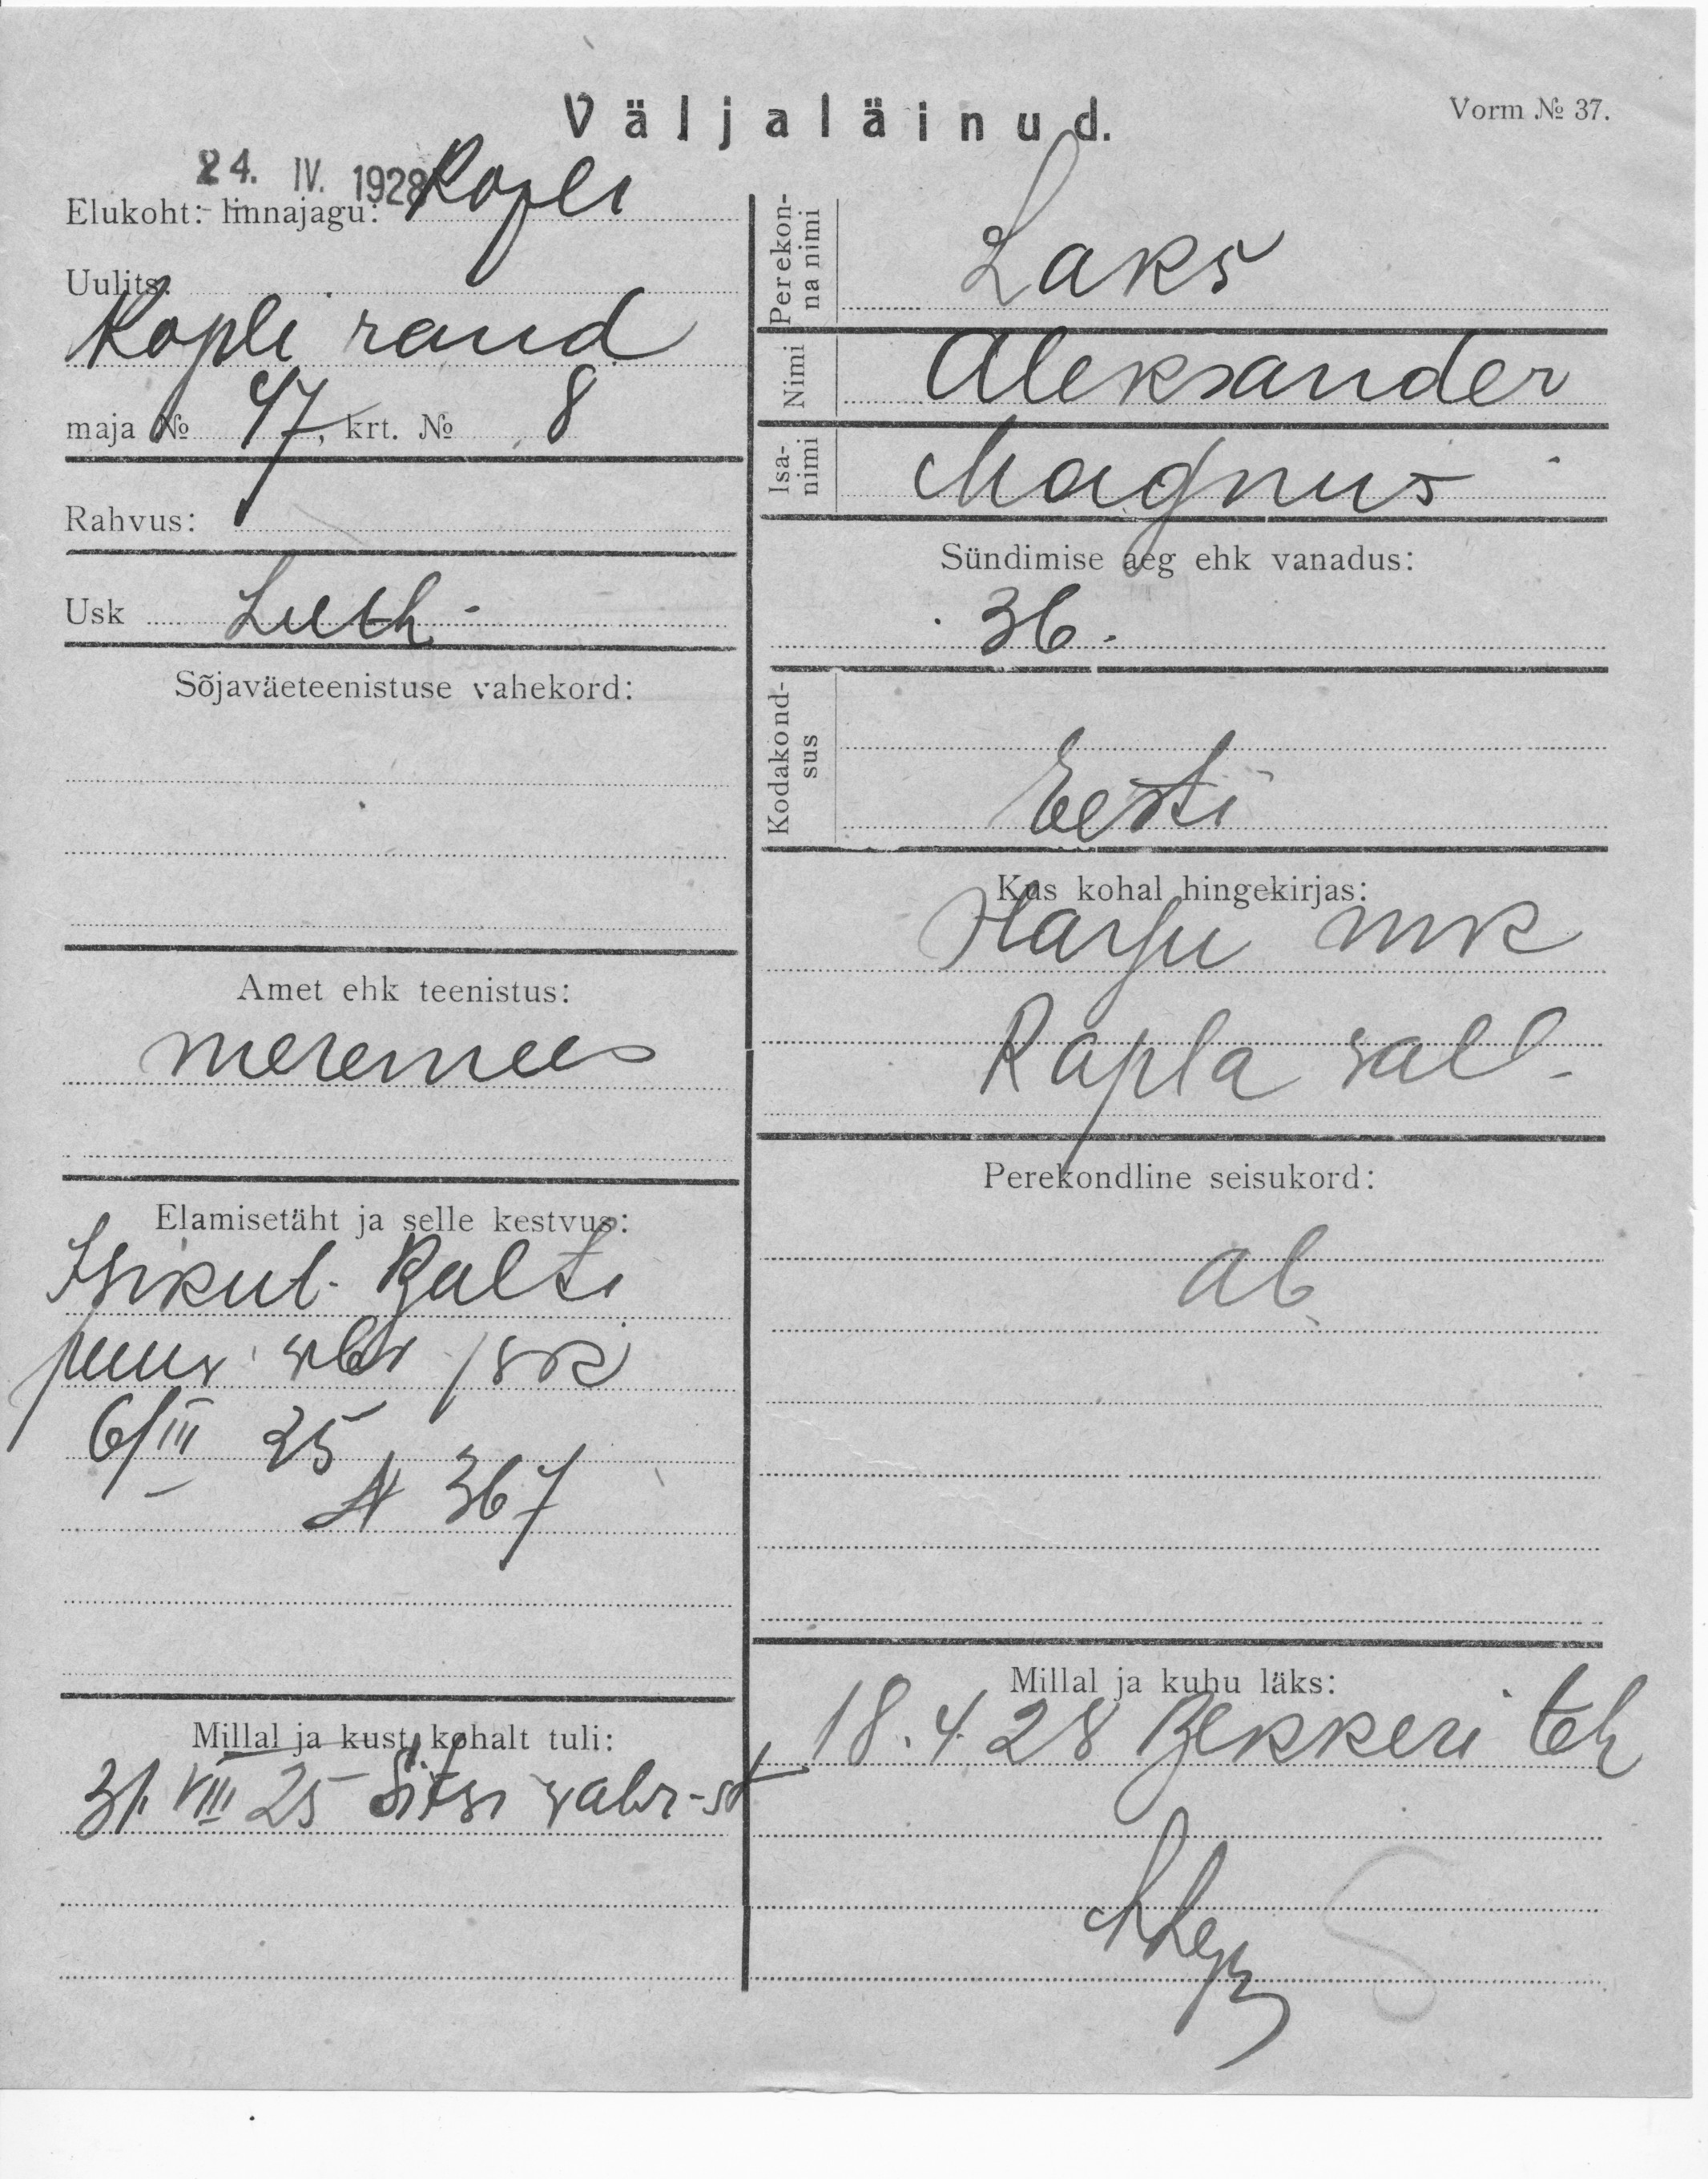 Väljaläinud.
Vorm № 37.
24. IV. 1928
Elukoht: linnajagu: Kopli
Uulits:
Kopli rand
maja № 47, krt. № 8
Rahvus:
Usk Luth.
Sõjaväeteenistuse vahekord:
Amet ehk teenistus:
meremees
Elamisetäht ja selle kestvus:
Isikut. Balti
puuv
6/III 25
№ 367
Millal ja kust kohalt tuli:
31. VIII 25 Sitsi vabr-st
Perekonna nimi
Laks
Nimi
Aleksander
Isanimi
Magnus
Sündimise aeg ehk vanadus:
36.
Kodakondsus
Eesti
Kus kohal hingekirjas:
Harju mk
Rapla vall.
Perekondline seisukord:
ab.
Millal ja kuhu läks:
18.4.28 Bekkeri teh